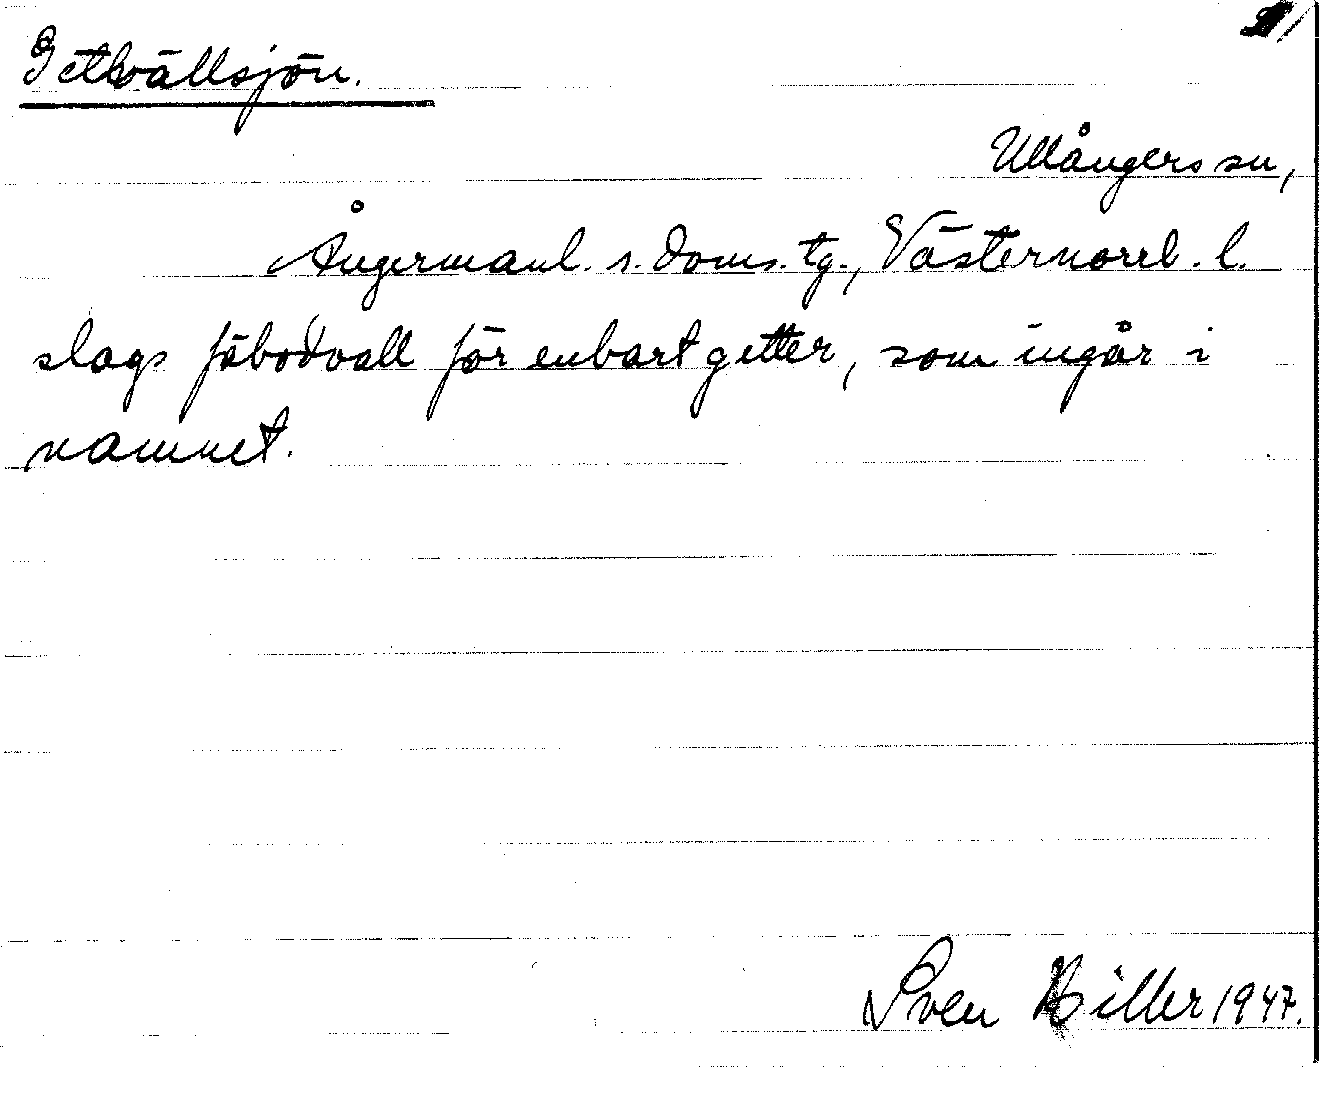 Getvällsjön.
Ullångers sn,
Ångermanl. s. doms. tg., Västernorrl. l.
slags fäbodvall för enbart getter, som ingår i
namnet.
Sven Hiller 1947.